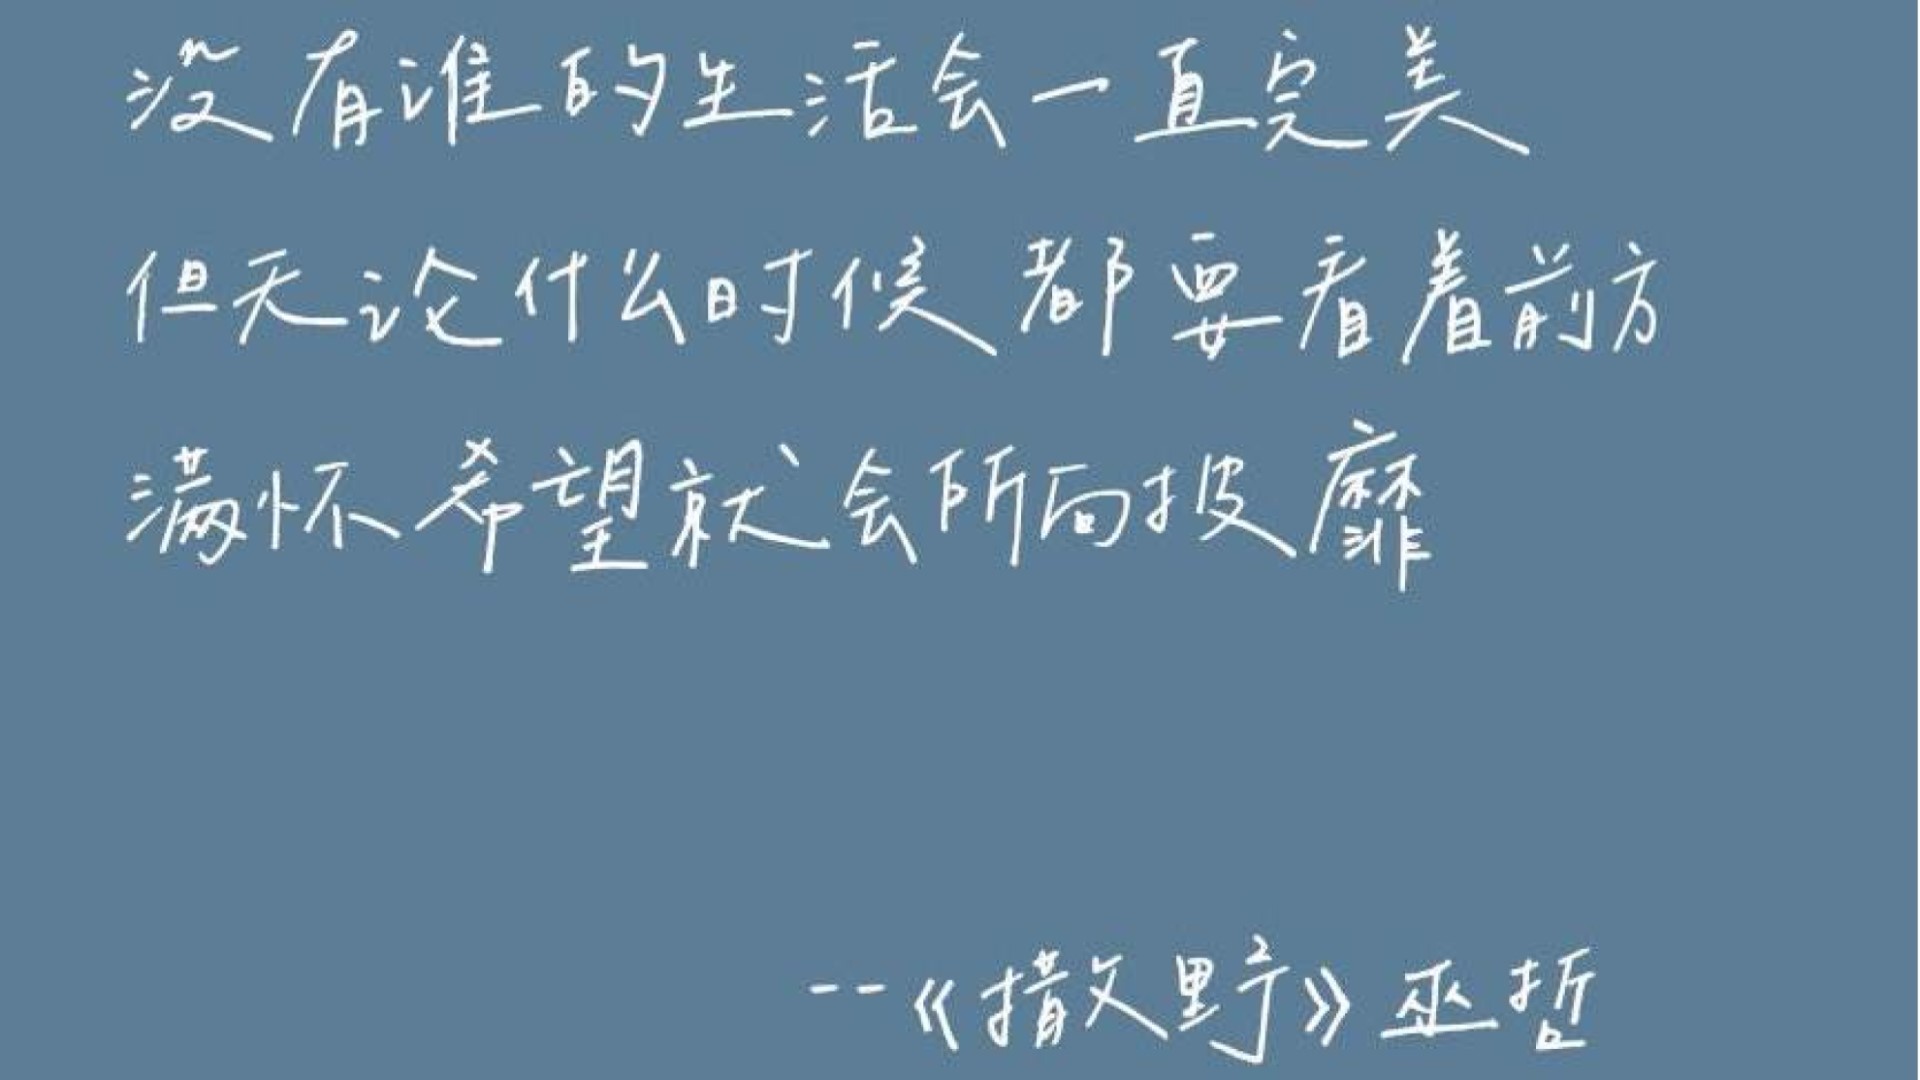 没有谁的生活会一直完美
但无论什么时候都要看着前方
满怀希望就会所向披靡
--《撒野》巫哲